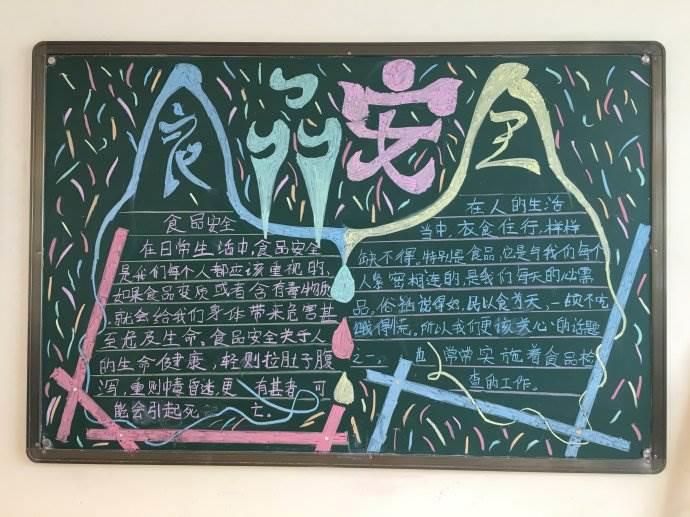 食品安全
食品安全
在日常生活中,食品安全
是我们每个人都应该重视的,
如果食品变质或者含有毒物质,
就会给我们身体带来危害甚
至危及生命。食品安全关于人
的生命健康,轻则拉肚子腹
泻,重则中毒昏迷,更有甚者可
能会引起死亡。
在人的生活
当中,衣食住行,样样
缺不得,特别是食品,它是与我们每个
人紧密相连的,是我们每天的必需
品。俗话说得好,民以食为天,一顿不吃
饿得慌。所以我们更该关心的话题
之一,且常常实施着食品检
查的工作。